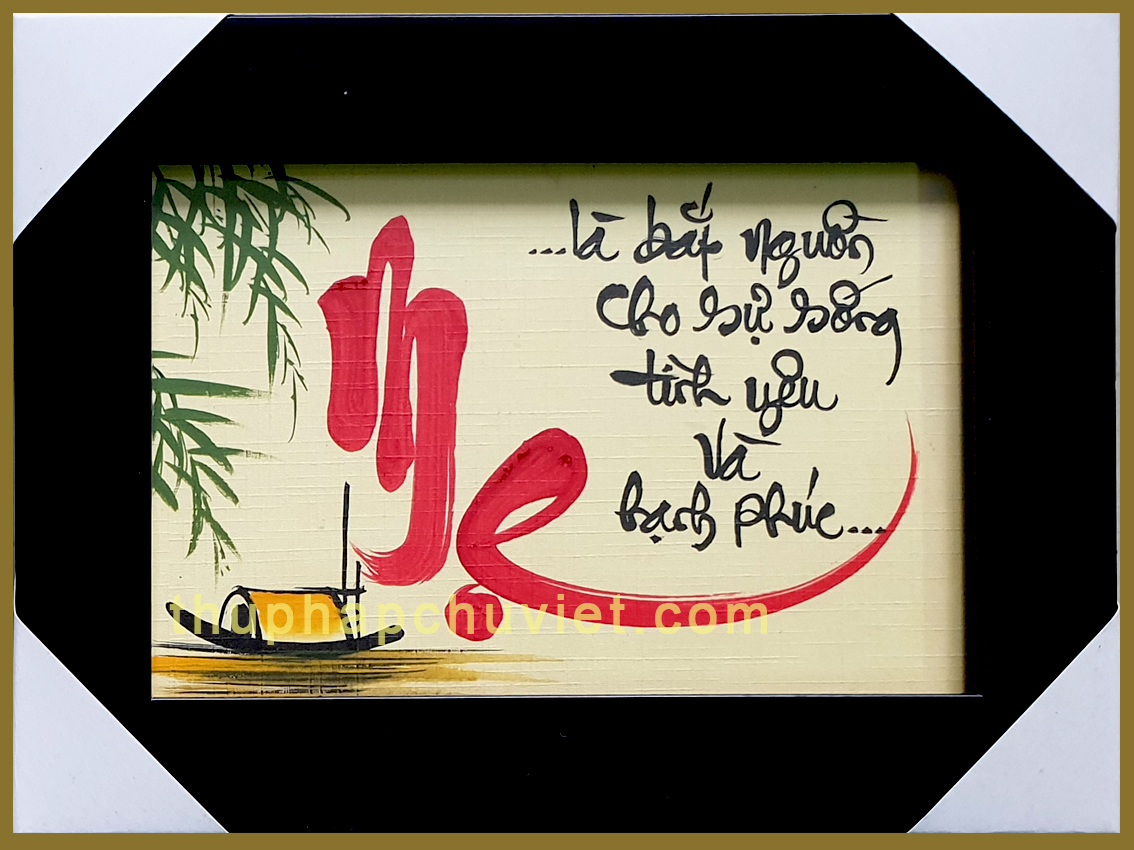 Mẹ
...là bắt nguồn
cho sự sống
tình yêu
và
hạnh phúc...
thuphapchuviet.com